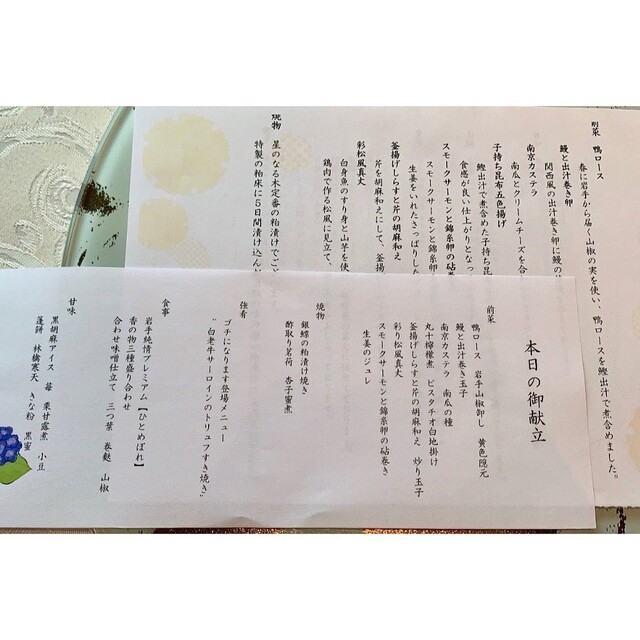 前菜 鴨ロース
春に岩手から届く山椒の実を使い、鴨ロースを鰹出汁で煮含めました。
鰻と出汁巻き卵
関西風の出汁巻き卵に鰻の
南京カステラ
南瓜とクリームチーズを合
子持ち昆布五色揚げ
鰹出汁で煮含めた子持ち昆
食感が良い仕上がりとなっ
スモークサーモンと錦糸卵の砧巻
スモークサーモンと錦糸卵
生姜をいれたさっぱりした
釜揚げしらすと芹の胡麻和え
芹を胡麻和えにして、釜揚
彩松風真丈
白身魚のすり身と山芋を使
鶏肉で作る松風に見立て、
焼物 星のなる木定番の粕漬けでご
特製の粕床に5日間漬け込ん
本日の御献立
前菜
鴨ロース 岩手山椒卸し 黄色隠元
鰻と出汁巻き玉子
南京カステラ 南瓜の種
丸十檸檬煮 ピスタチオ白地掛け
釜揚げしらすと芹の胡麻和え 炒り玉子
彩り松風真丈
スモークサーモンと錦糸卵の砧巻き
生姜のジュレ
焼物
銀鰈の粕漬け焼き
酢取り茗荷 杏子蜜煮
強肴
ゴチになります登場メニュー
"白老牛サーロインのトリュフすき焼き"
食事
岩手純情プレミアム【ひとめぼれ】
香の物三種盛り合わせ
合わせ味噌仕立て 三つ葉 巻麩 山椒
甘味
黒胡麻アイス 苺 栗甘露煮 小豆
蓬餅 林檎寒天 きな粉 黒蜜